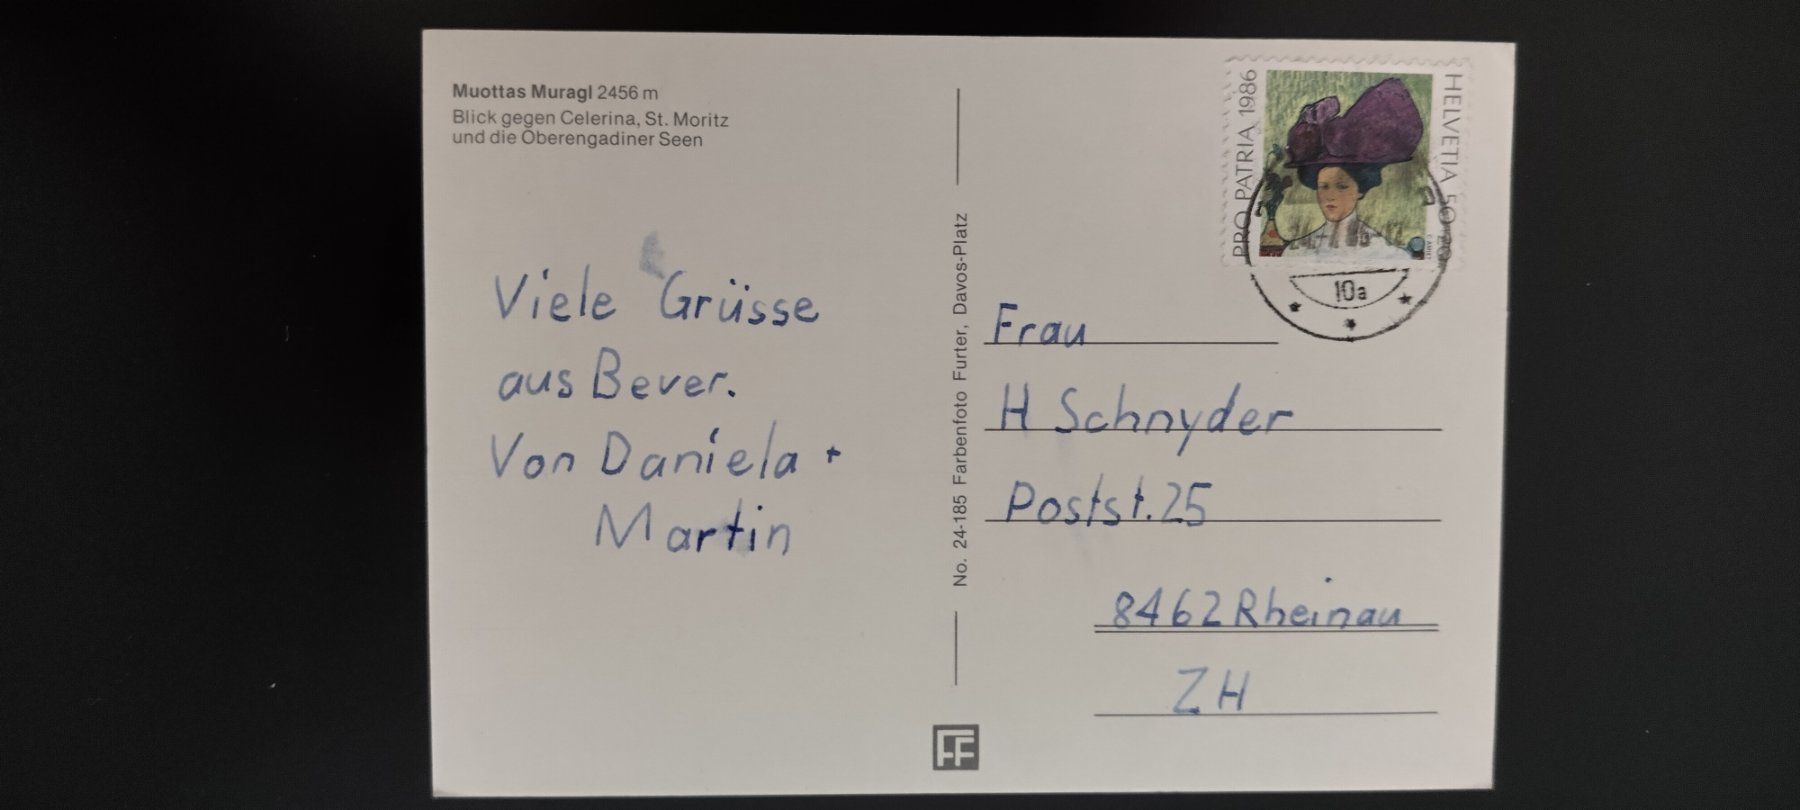 Muottas Muragl 2456 m
Blick gegen Celerina, St. Moritz
und die Oberengadiner Seen
Viele Grüsse
aus Bever.
Von Daniela +
Martin
No. 24-185 Farbenfoto Furter, Davos-Platz
FF
PRO PATRIA 1986
HELVETIA 50+20
10a
Frau
H Schnyder
Postst. 25
8462 Rheinau
ZH